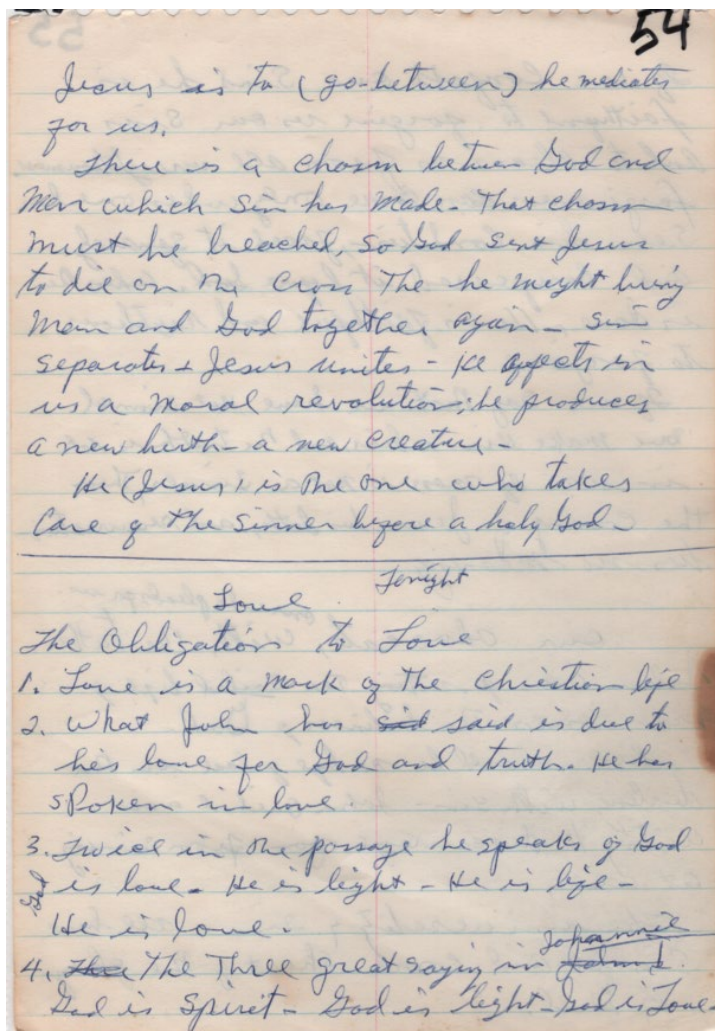 54
Jesus is to (go-between) he mediates
for us.
There is a chasm between God and
Man which Sin has made - That chasm
must be breached, so God sent Jesus
to die on the Cross The he might bring
Man and God together again - Sin
separates + Jesus unites - He affects in
us a moral revolution; he produces
a new birth - a new creature -
He (Jesus) is the one who takes
Care of the Sinner before a holy God -
Tonight
Love
The Obligation to Love
1. Love is a mark of the Christian life
2. What John has said is due to
his love for God and truth. He has
spoken in love.
3. Twice in the passage he speaks of God
God is love - He is light - He is life -
He is love.
Johannie
4. The Three great saying in
God is Spirit - God is light - God is Love -